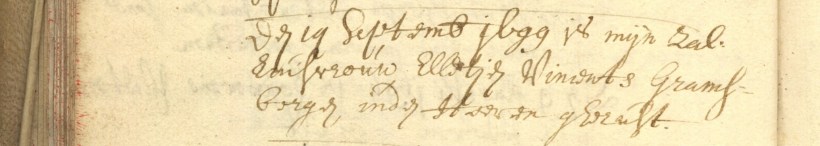 den 19 Septemb 1699 is mijn Zal.
huisvrouw Elletjen Vincents Grams-
bergen, inden Heeren gherust.